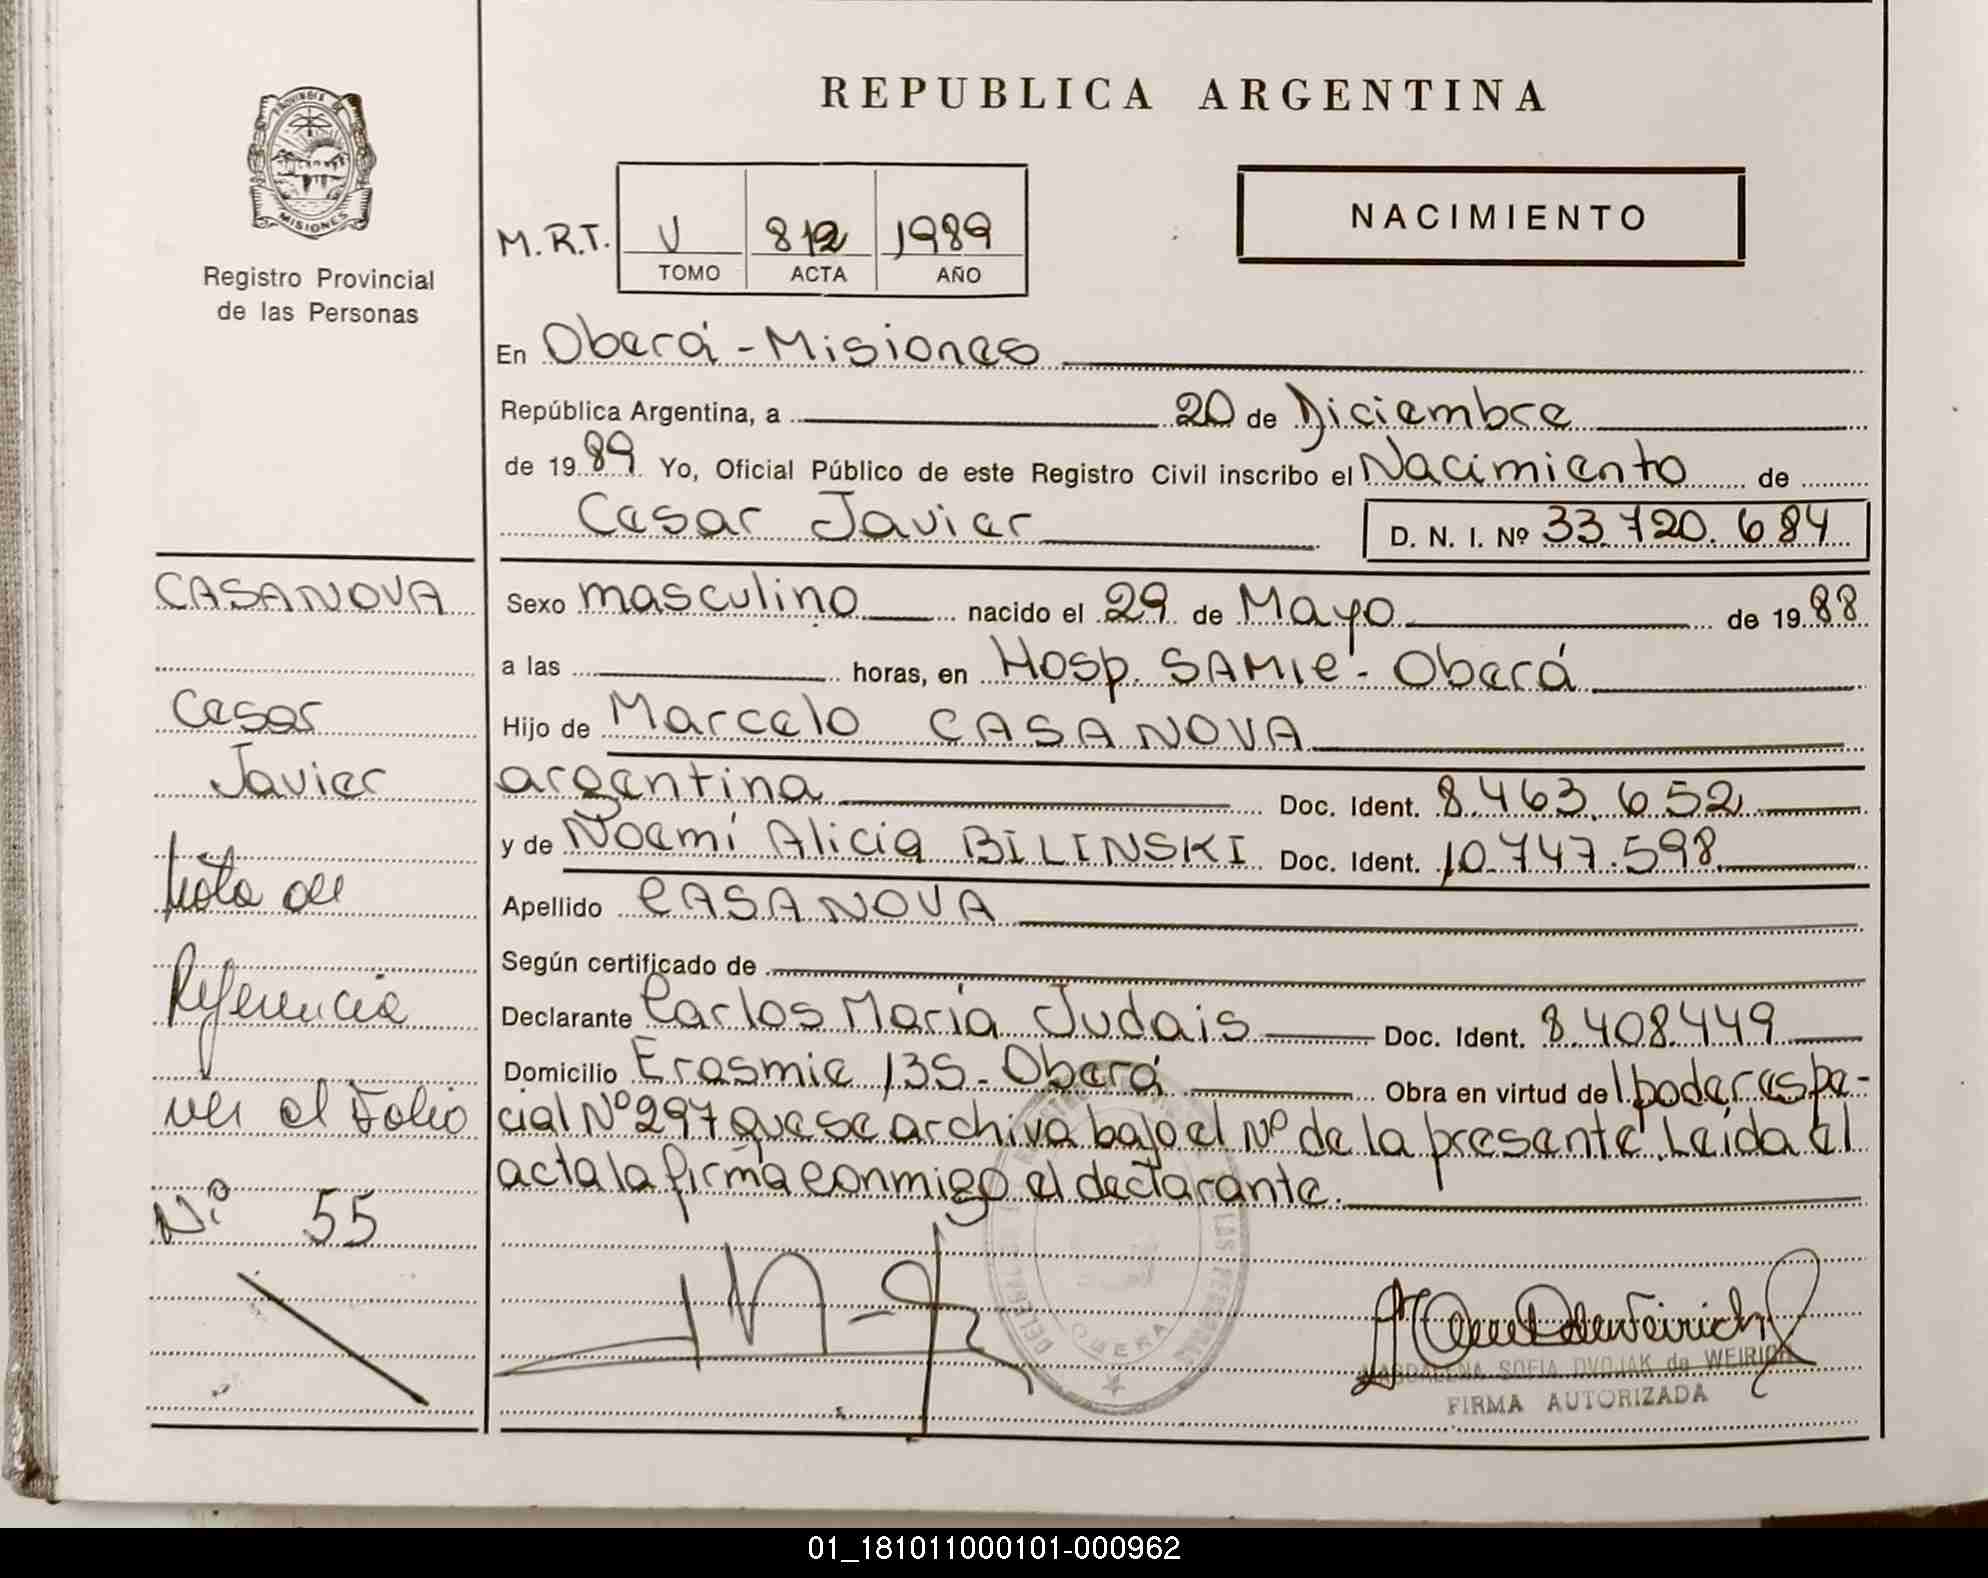 REPUBLICA ARGENTINA
PROVINCIA DE
MISIONES
Registro Provincial
de las Personas
M.R.T.
V 812 1989
TOMO ACTA AÑO
NACIMIENTO
En Oberá - Misiones
República Argentina, a 20 de Diciembre
de 1989 Yo, Oficial Público de este Registro Civil inscribo el Nacimiento de
Cesar Javier D. N. I. Nº 33.720.684
CASANOVA
Cesar
Javier
Nota de
Referencia
ver el Folio
Nº 55
Sexo masculino nacido el 29 de Mayo de 1988
a las horas, en Hosp. SAMIC - Oberá
Hijo de Marcelo CASANOVA
argentina Doc. Ident. 8.463.652
y de Noemí Alicia BILINSKI Doc. Ident. 10.747.598
Apellido CASANOVA
Según certificado de
Declarante Carlos María Judais Doc. Ident. 8.408.449
Domicilio Erasmie 135 - Oberá Obra en virtud del poder espe-
cial Nº 297 que se archiva bajo el Nº de la presente. Leída el
acta la firma conmigo el declarante.
OBERA
MAGDALENA SOFIA DVOJAK de WEIRICH
FIRMA AUTORIZADA
01_181011000101-000962